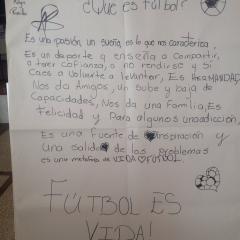 ¿Que es fútbol?
Es una pasión, un sueño, es lo que nos caracteriza,
Es un deporte q enseña a compartir,
a tener cofianza, a no rendirse y Si
Caes a volverte a levantar, Es HERMANDAD
Nos da Amigos, un sube y baja de
Capacidades, Nos da una Familia, Es
Felicidad y Para algunos una adicción,
Es una fuente de inspiración y
Una salida de los problemas
es una metafora de VIDA FÚTBOL.
FÚTBOL ES
VIDA!